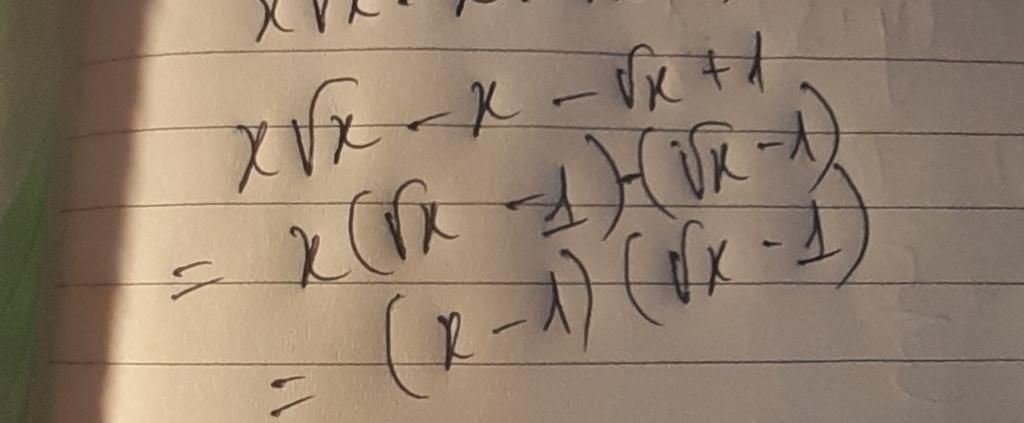 x√x
x√x - x - √x + 1
= x(√x - 1) - (√x - 1)
= (x - 1)(√x - 1)